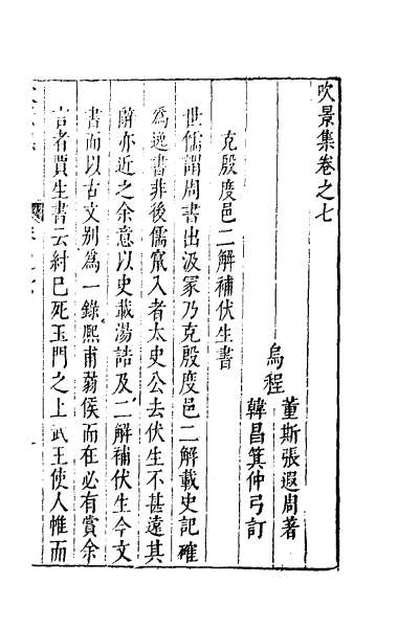 吹景集卷之七
烏程
董斯張遐周著
韓昌箕仲弓訂
克殷度邑二解補伏生書
世儒謂周書出汲冢乃克殷度邑二解載史記確
為逸書非後儒竄入者太史公去伏生不甚遠其
辭亦近之余意以史載湯誥及二解補伏生今文
書而以古文别為一錄熙甫蒻侯而在必有賞余
言者賈生書云紂巳死玉門之上武王使人帷而